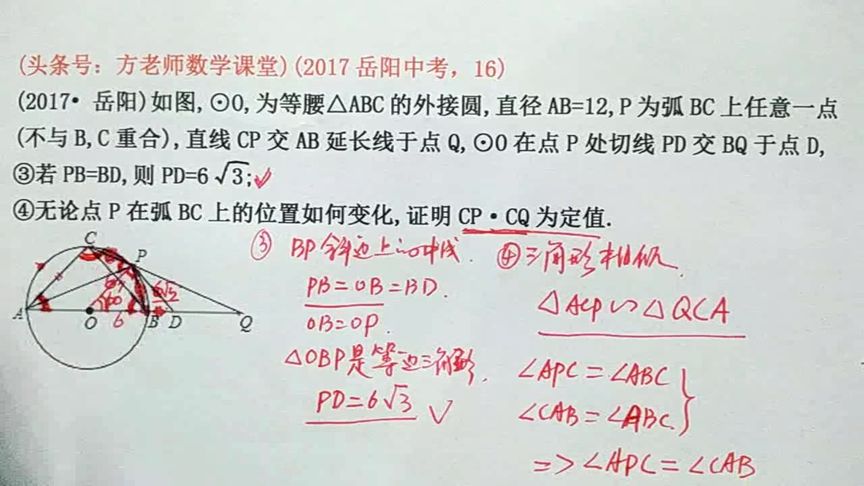 (头条号：方老师数学课堂)(2017 岳阳中考，16)
(2017• 岳阳)如图,⊙O,为等腰△ABC 的外接圆,直径 AB=12,P 为弧 BC 上任意一点
(不与 B,C 重合),直线 CP 交 AB 延长线于点 Q,⊙O 在点 P 处切线 PD 交 BQ 于点 D,
③若 PB=BD,则 PD=6√3;✓
④无论点 P 在弧 BC 上的位置如何变化,证明 CP·CQ 为定值.
C
P
A
O
B
D
Q
60
6
6√3
③ BP斜边上的中线.
PB=OB=BD.
OB=OP.
△OBP是等边三角形.
PD=6√3 ✓
④三角形相似.
△ACP∽△QCA
∠APC=∠ABC
∠CAB=∠ABC
=>∠APC=∠CAB